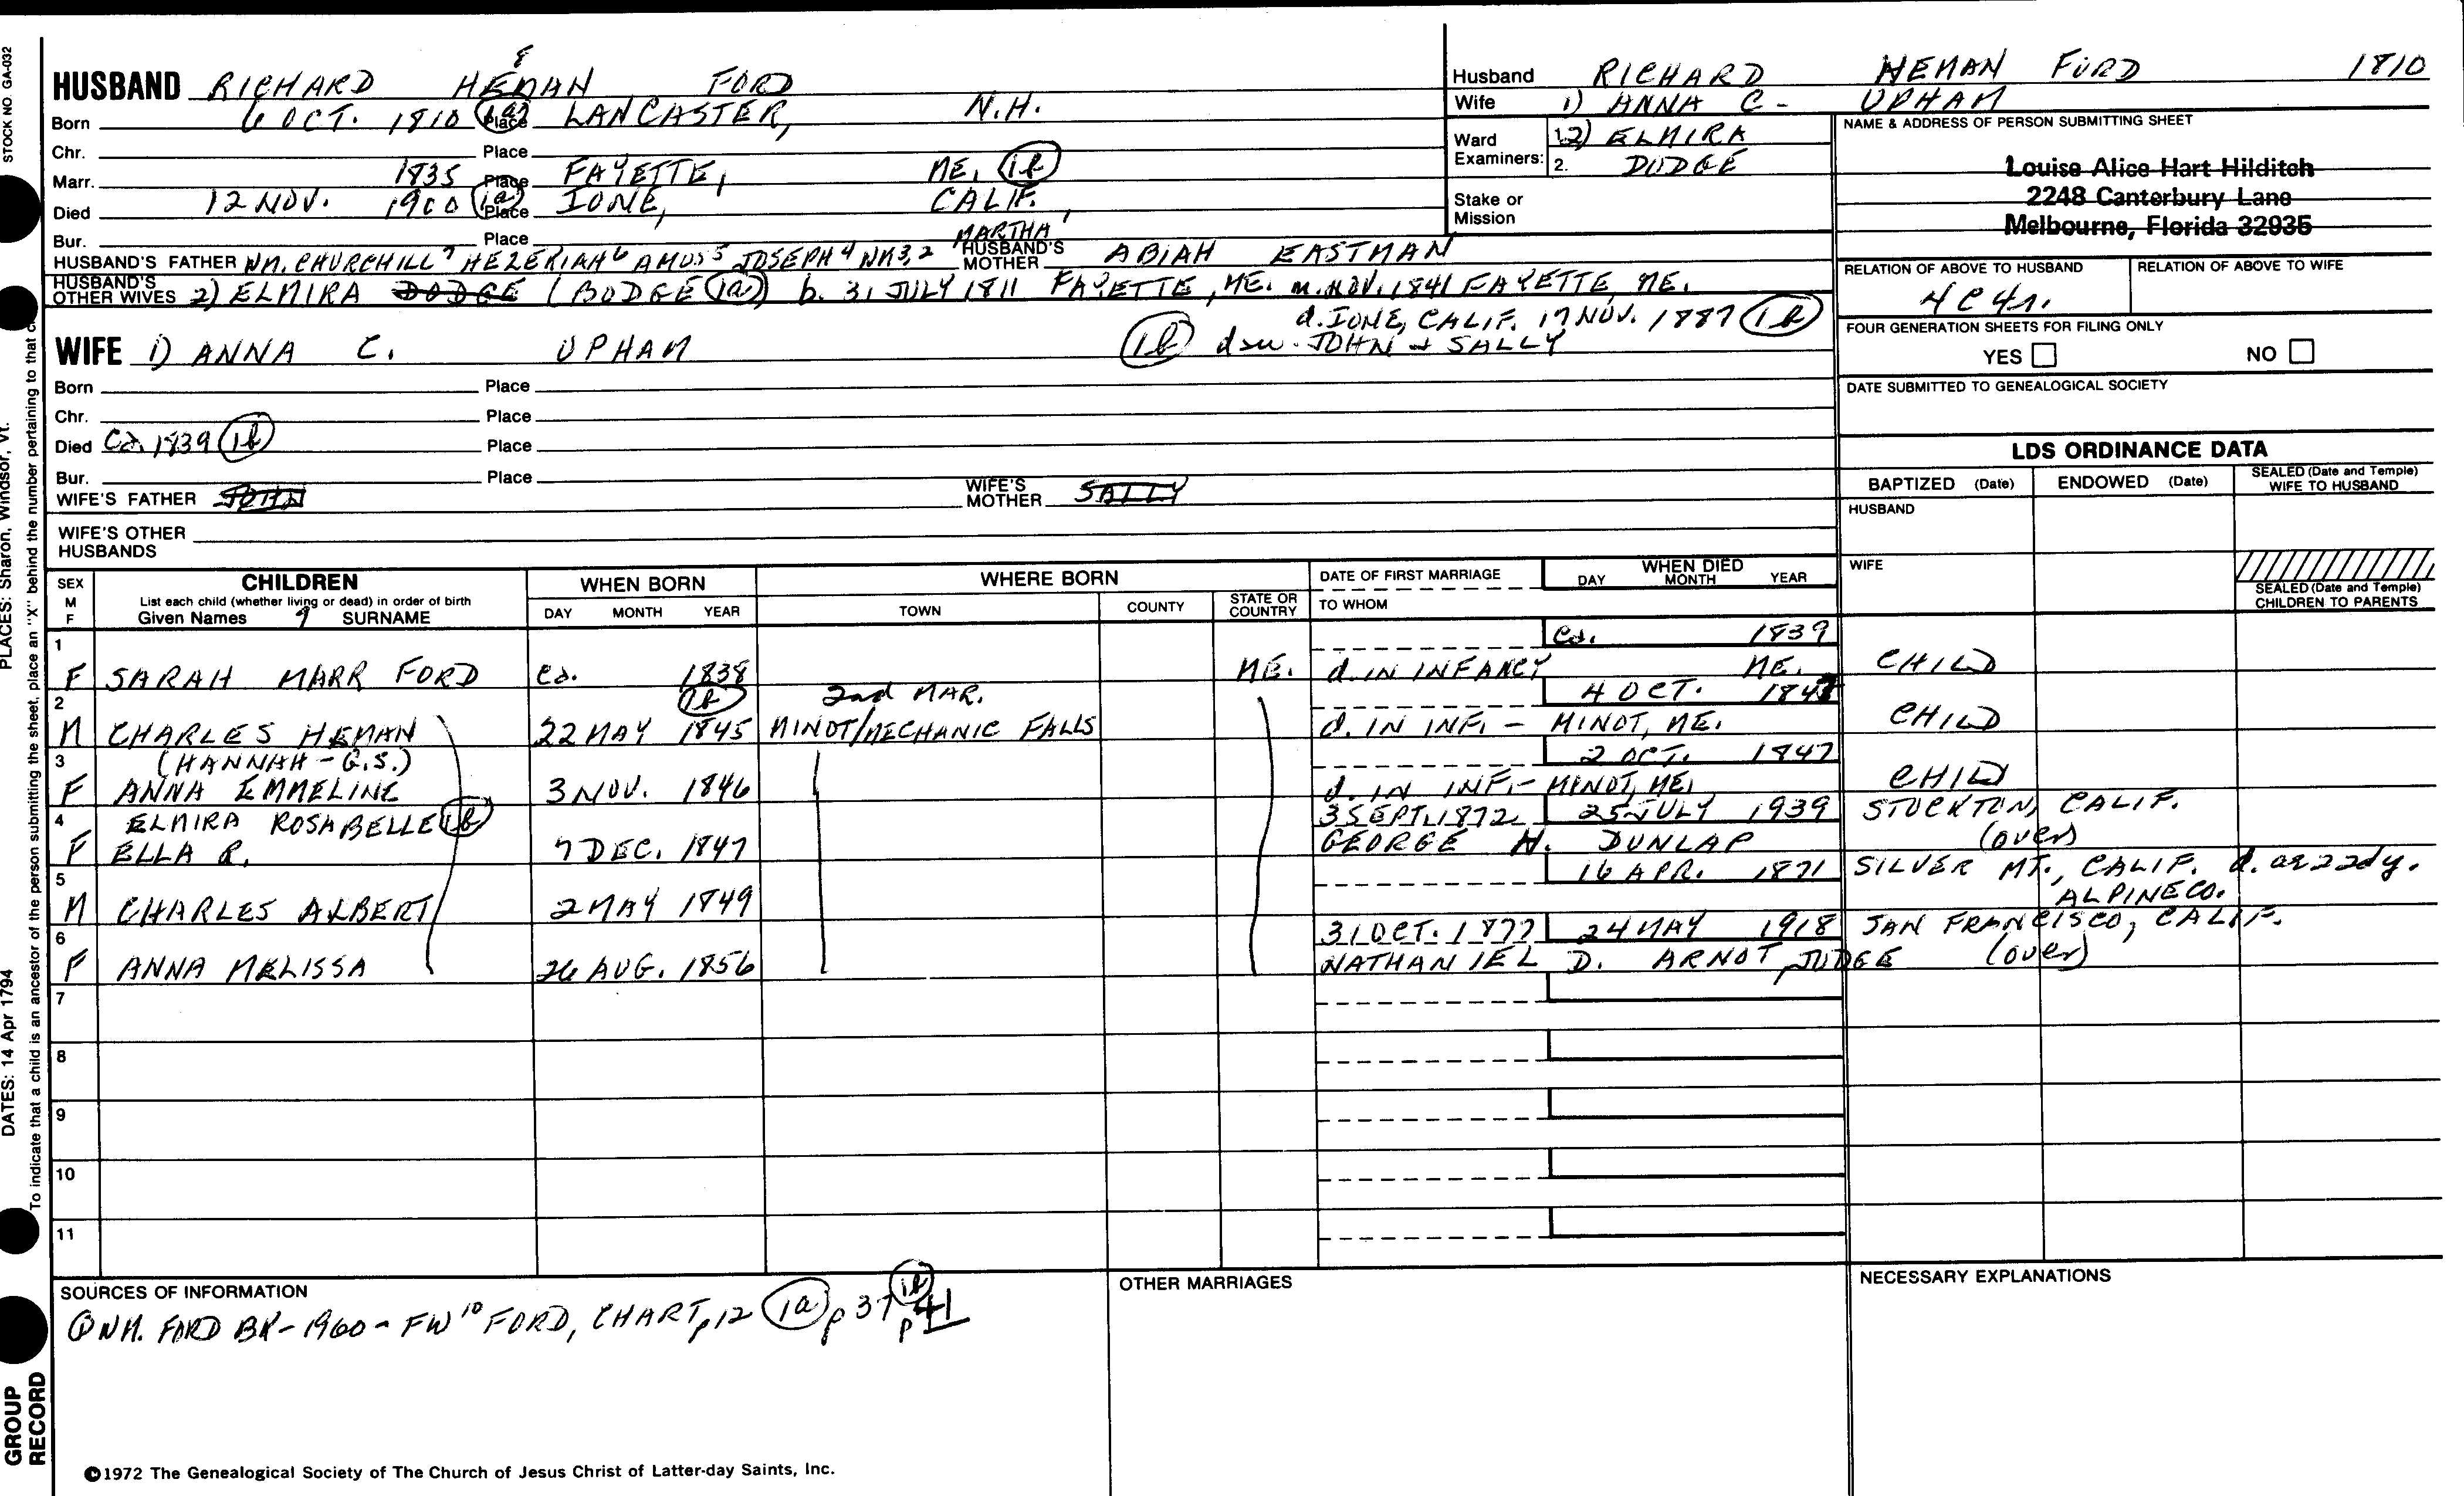 STOCK NO. GA-032
8
HUSBAND RICHARD HEMAN FORD
Born 6 OCT. 1810 (1a) Place LANCASTER, N.H.
Chr. Place
Marr. 1835 Place FAYETTE, ME. (1b)
Died 12 NOV. 1900 (1a) Place IONE, CALIF.
Bur. Place
HUSBAND'S FATHER WM. CHURCHILL 7 HEZEKIAH 6 AMOS 5 JOSEPH 4 WM 3,2 HUSBAND'S MOTHER MARTHA ABIAH EASTMAN
HUSBAND'S OTHER WIVES 2) ELMIRA DODGE (BODGE (1a)) b. 31 JULY 1811 FAYETTE, ME. m. NOV. 1841 FAYETTE, ME.
d. IONE, CALIF. 17 NOV. 1887 (1b)
WIFE 1) ANNA C. UPHAM (1b) dau. JOHN + SALLY
Born Place
Chr. Place
Died Ca. 1839 (1b) Place
Bur. Place
WIFE'S FATHER JOHN WIFE'S MOTHER SALLY
WIFE'S OTHER HUSBANDS
Husband RICHARD HEMAN FORD 1810
Wife 1) ANNA C. UPHAM
Ward Examiners: 1. 2) ELMIRA
2. DODGE
Stake or Mission
NAME & ADDRESS OF PERSON SUBMITTING SHEET
Louise Alice Hart Hilditch
2248 Canterbury Lane
Melbourne, Florida 32935
RELATION OF ABOVE TO HUSBAND RELATION OF ABOVE TO WIFE
4C4r.
FOUR GENERATION SHEETS FOR FILING ONLY
YES NO
DATE SUBMITTED TO GENEALOGICAL SOCIETY
LDS ORDINANCE DATA
BAPTIZED (Date) ENDOWED (Date) SEALED (Date and Temple) WIFE TO HUSBAND
HUSBAND
WIFE
SEALED (Date and Temple) CHILDREN TO PARENTS
SEX M F
CHILDREN
List each child (whether living or dead) in order of birth
Given Names 9 SURNAME
WHEN BORN
DAY MONTH YEAR
WHERE BORN
TOWN COUNTY STATE OR COUNTRY
DATE OF FIRST MARRIAGE
TO WHOM
WHEN DIED
DAY MONTH YEAR
1 Ca. 1839
F SARAH MARR FORD Ca. 1838 ME. d. IN INFANCY ME. CHILD
2 (1b) 2nd MAR. 4 OCT. 1847
M CHARLES HEMAN 22 MAY 1845 MINOT/MECHANIC FALLS d. IN INF. - MINOT, ME. CHILD
3 (HANNAH - G.S.) 2 OCT. 1847
F ANNA EMMELINE 3 NOV. 1846 d. IN INF. - MINOT, ME. CHILD
4 ELMIRA ROSABELLE (1b) 3 SEPT. 1872 25 JULY 1939 STOCKTON, CALIF.
F ELLA R. 7 DEC. 1847 GEORGE H. DUNLAP (over)
5 16 APR. 1871 SILVER MT., CALIF. d. as 22 dy.
M CHARLES ALBERT 2 MAY 1849 ALPINE CO.
6 31 OCT. 1877 24 MAY 1918 SAN FRANCISCO, CALIF.
F ANNA MELISSA 26 AUG. 1856 NATHANIEL D. ARNOT, JUDGE (over)
7
8
9
10
11
SOURCES OF INFORMATION
① WM. FORD BK - 1960 - FW 10 FORD, CHART, p 12 (1a) p 37 (1b) p 41
OTHER MARRIAGES
NECESSARY EXPLANATIONS
©1972 The Genealogical Society of The Church of Jesus Christ of Latter-day Saints, Inc.
PLACES: Sharon, Windsor, Vt.
DATES: 14 Apr 1794
To indicate that a child is an ancestor of the person submitting the sheet, place an "X" behind the number pertaining to that
GROUP RECORD